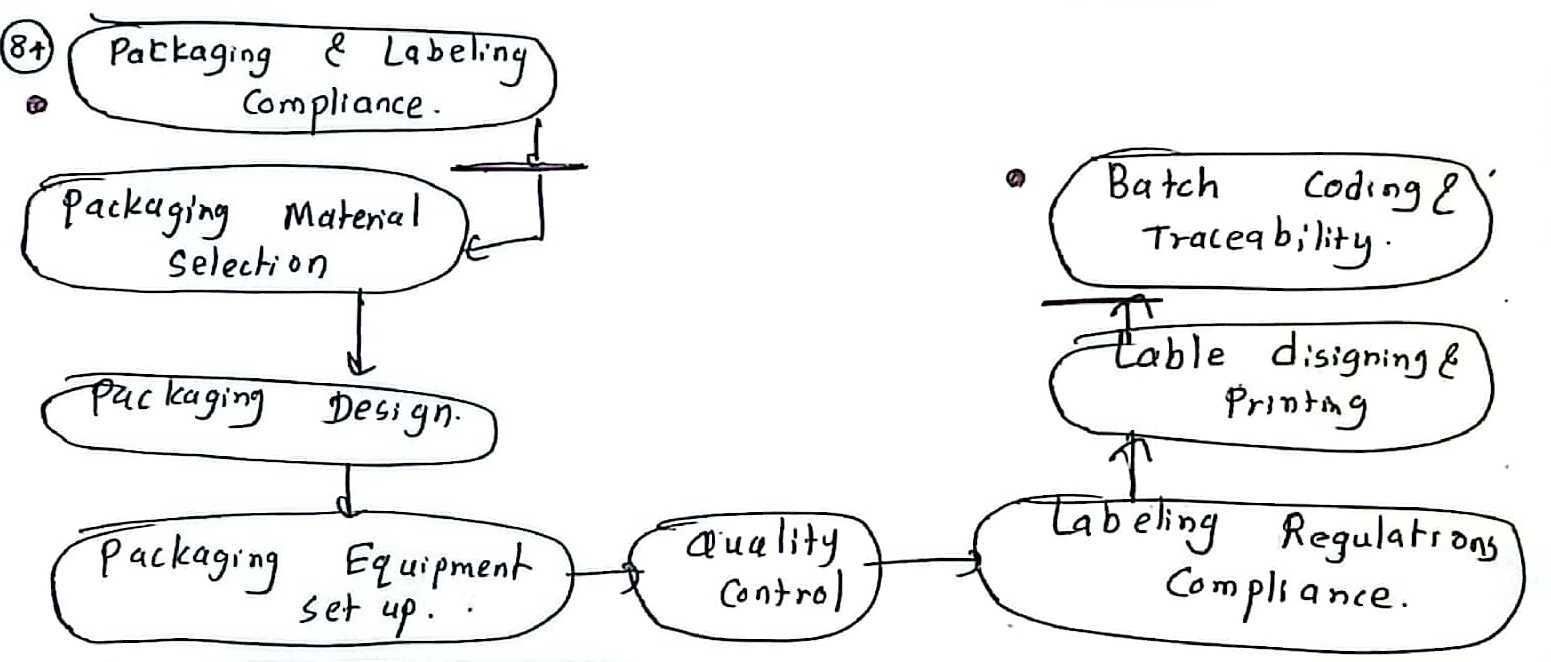 84
Packaging & Labeling
Compliance.
Packaging Material
Selection
Packaging Design.
Packaging Equipment
set up.
Quality
Control
Labeling Regulations
Compliance.
Lable disigning &
Printing
Batch Coding &
Traceability.